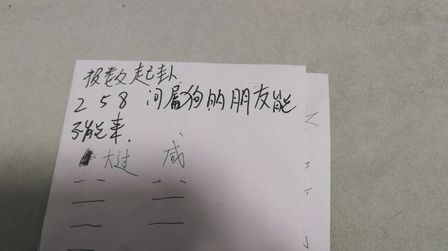 报数起卦
258 问属狗的朋友能
不能来.
大过 咸